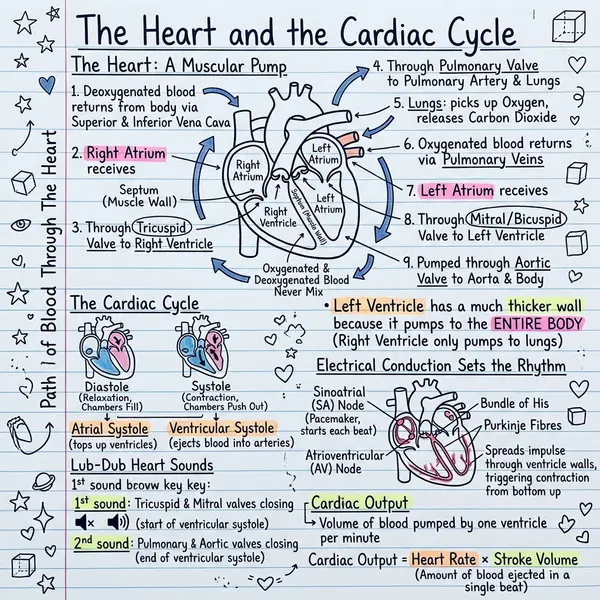 The Heart and the Cardiac Cycle
The Heart: A Muscular Pump
1. Deoxygenated blood
returns from body via
Superior & Inferior Vena Cava
2. Right Atrium
receives
Septum
(Muscle Wall)
3. Through Tricuspid
Valve to Right Ventricle
Right
Atrium
Left
Atrium
Right
Ventricle
Septum (Muscle Wall)
Left
Atrium
Oxygenated &
Deoxygenated Blood
Never Mix
4. Through Pulmonary Valve
to Pulmonary Artery & Lungs
5. Lungs: picks up Oxygen,
releases Carbon Dioxide
6. Oxygenated blood returns
via Pulmonary Veins
7. Left Atrium receives
8. Through Mitral/Bicuspid
Valve to Left Ventricle
9. Pumped through Aortic
Valve to Aorta & Body
Path l of Blood Through The Heart
• Left Ventricle has a much thicker wall
because it pumps to the ENTIRE BODY
(Right Ventricle only pumps to lungs)
The Cardiac Cycle
Diastole
(Relaxation,
Chambers Fill)
Systole
(Contraction,
Chambers Push Out)
Atrial Systole
(tops up ventricles)
Ventricular Systole
(ejects blood into arteries)
Lub-Dub Heart Sounds
1st sound bcoww key key:
1st sound: Tricuspid & Mitral valves closing
(start of ventricular systole)
2nd sound: Pulmonary & Aortic valves closing
(end of ventricular systole)
Electrical Conduction Sets the Rhythm
Sinoatrial
(SA) Node
(Pacemaker,
starts each beat)
Atrioventricular
(AV) Node
Bundle of His
Purkinje Fibres
Spreads impulse
through ventricle walls,
triggering contraction
from bottom up
Cardiac Output
Volume of blood pumped by one ventricle
per minute
Cardiac Output = Heart Rate × Stroke Volume
(Amount of blood ejected in a
single beat)